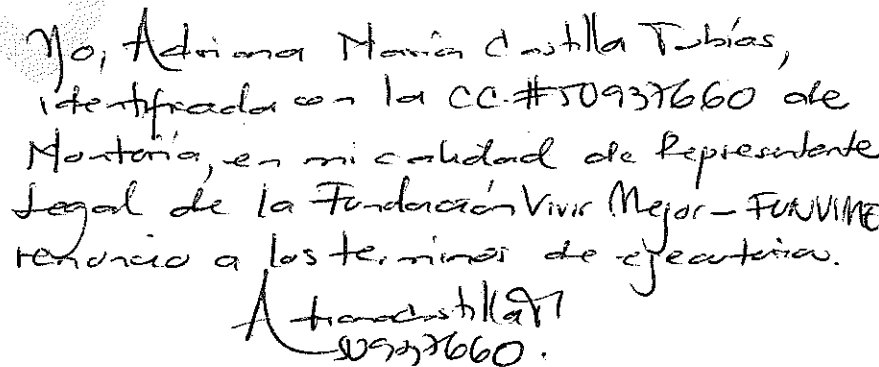 Yo, Adriana María Castilla Tubías,
identificada con la CC.#50937660 de
Montería, en mi calidad de Representante
Legal de la Fundación Vivir Mejor - FUNVIME
renuncio a los terminos de ejecutoria.
50937660.